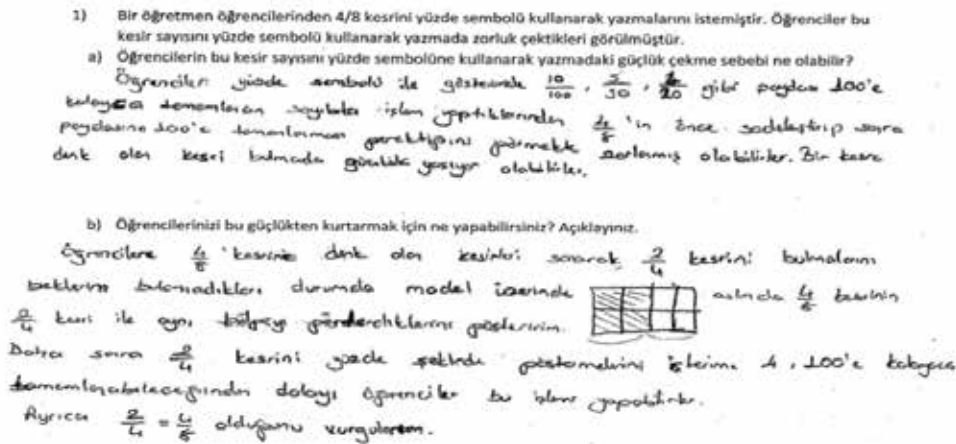 1) Bir öğretmen öğrencilerinden 4/8 kesrini yüzde sembolü kullanarak yazmalarını istemiştir. Öğrenciler bu
kesir sayısını yüzde sembolü kullanarak yazmada zorluk çektikleri görülmüştür.
a) Öğrencilerin bu kesir sayısını yüzde sembolüne kullanarak yazmadaki güçlük çekme sebebi ne olabilir?
Öğrenciler yüzde sembolü ile gösterimde 10/100, 5/50, 2/20 gibi paydası 100'e
kolayca tamamlanan sayılarla işlem yaptıklarından 4/8 'in önce sadeleştirip sonra
paydasını 100'e tamamlanması gerektiğini görmekte zorlanmış olabilirler. Bir kesre
denk olan kesri bulmada güçlük yaşıyor olabilirler.
b) Öğrencilerinizi bu güçlükten kurtarmak için ne yapabilirsiniz? Açıklayınız.
Öğrencilere 4/8 'kesrine denk olan kesirleri sorarak 2/4 kesrini bulmalarını
beklerim bulamadıkları durumda model üzerinde aslında 4/8 kesrinin
2/4 kesri ile aynı bölgeyi gönderdiklerini gösteririm.
Daha sonra 2/4 kesrini yüzde şeklinde göstermelerini isterim. 4, 100'e kolayca
tamamlanabileceğinden dolayı öğrenciler bu işlemi yapabilirler.
Ayrıca 2/4 = 4/8 olduğunu vurgularım.